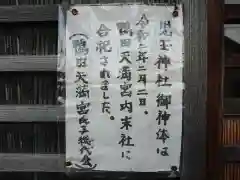 児玉神社御神体は
令和二年二月二日、
鴨田天満宮内末社に
合祀されました。
(鴨田天満宮氏子総代会)